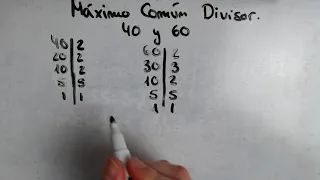 Máximo Común Divisor.
40 y 60
40 | 2
20 | 2
10 | 2
5 | 5
1 | 1
60 | 2
30 | 3
10 | 2
5 | 5
1 | 1